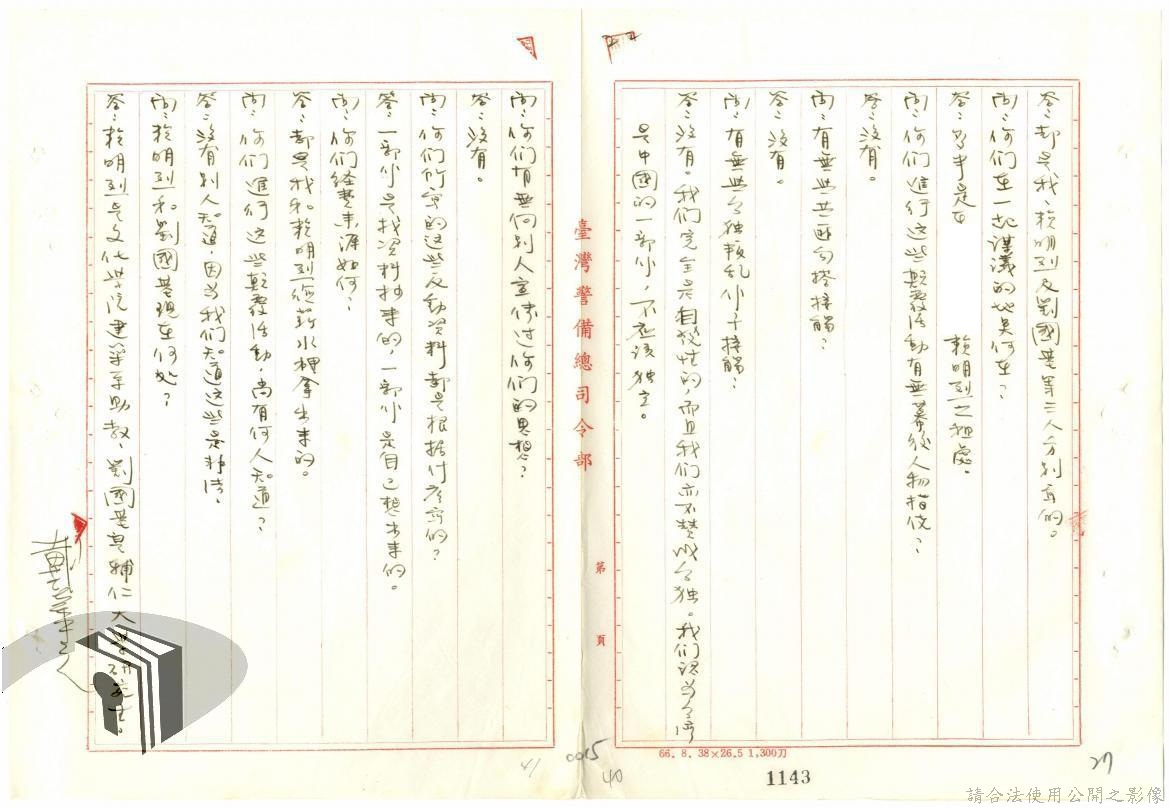 答：都是我、賴明烈及劉國基等三人分別寫的。
問：你们在一起謀議的地点何在？
答：多半是在　　　賴明烈之租處。
問：你们進行这些颠覆活動有無幕後人物指使？
答：沒有。
問：有無與共匪勾搭接觸？
答：沒有。
問：有無與台独叛乱份子接觸？
答：沒有。我们完全是自發性的，而且我们亦不赞成台独。我们認为台湾
是中國的一部份，不应該独立。
臺灣警備總司令部
第　頁
問：你们有無向别人宣傳过你们的思想？
答：沒有。
問：你们所寫的这些反動資料都是根据什麼寫的？
答：一部份是找資料抄來的，一部份是自己想出來的。
問：你们经費來源如何？
答：都是我和賴明烈從薪水裡拿出來的。
問：你们進行这些颠覆活動，尚有何人知道？
答：沒有别人知道，因为我们知道这些是非法。
問：賴明烈和劉國基現在何处？
答：賴明烈是文化學院建築系助教，劉國基是輔仁大學研究生。
66．8．38×26.5 1,300刀
1143
0015
41
40
27
請合法使用公開之影像